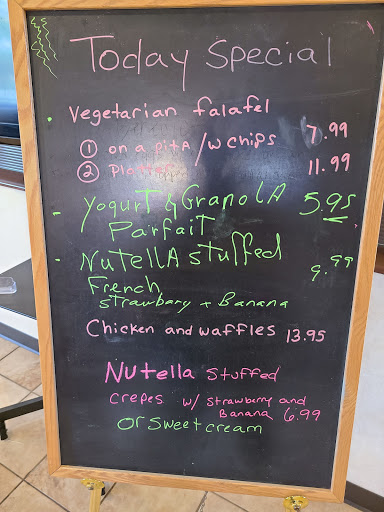 Today Special
Vegetarian falafel
① on a pitA /w chips 7.99
② Platter 11.99
- Yogurt & GranolA 5.95
Parfait
- NutellA stuffed
French 9.99
strawbary + Banana
Chicken and waffles 13.95
Nutella stuffed
crepes w/ strawberry and
Banana 6.99
or sweet cream